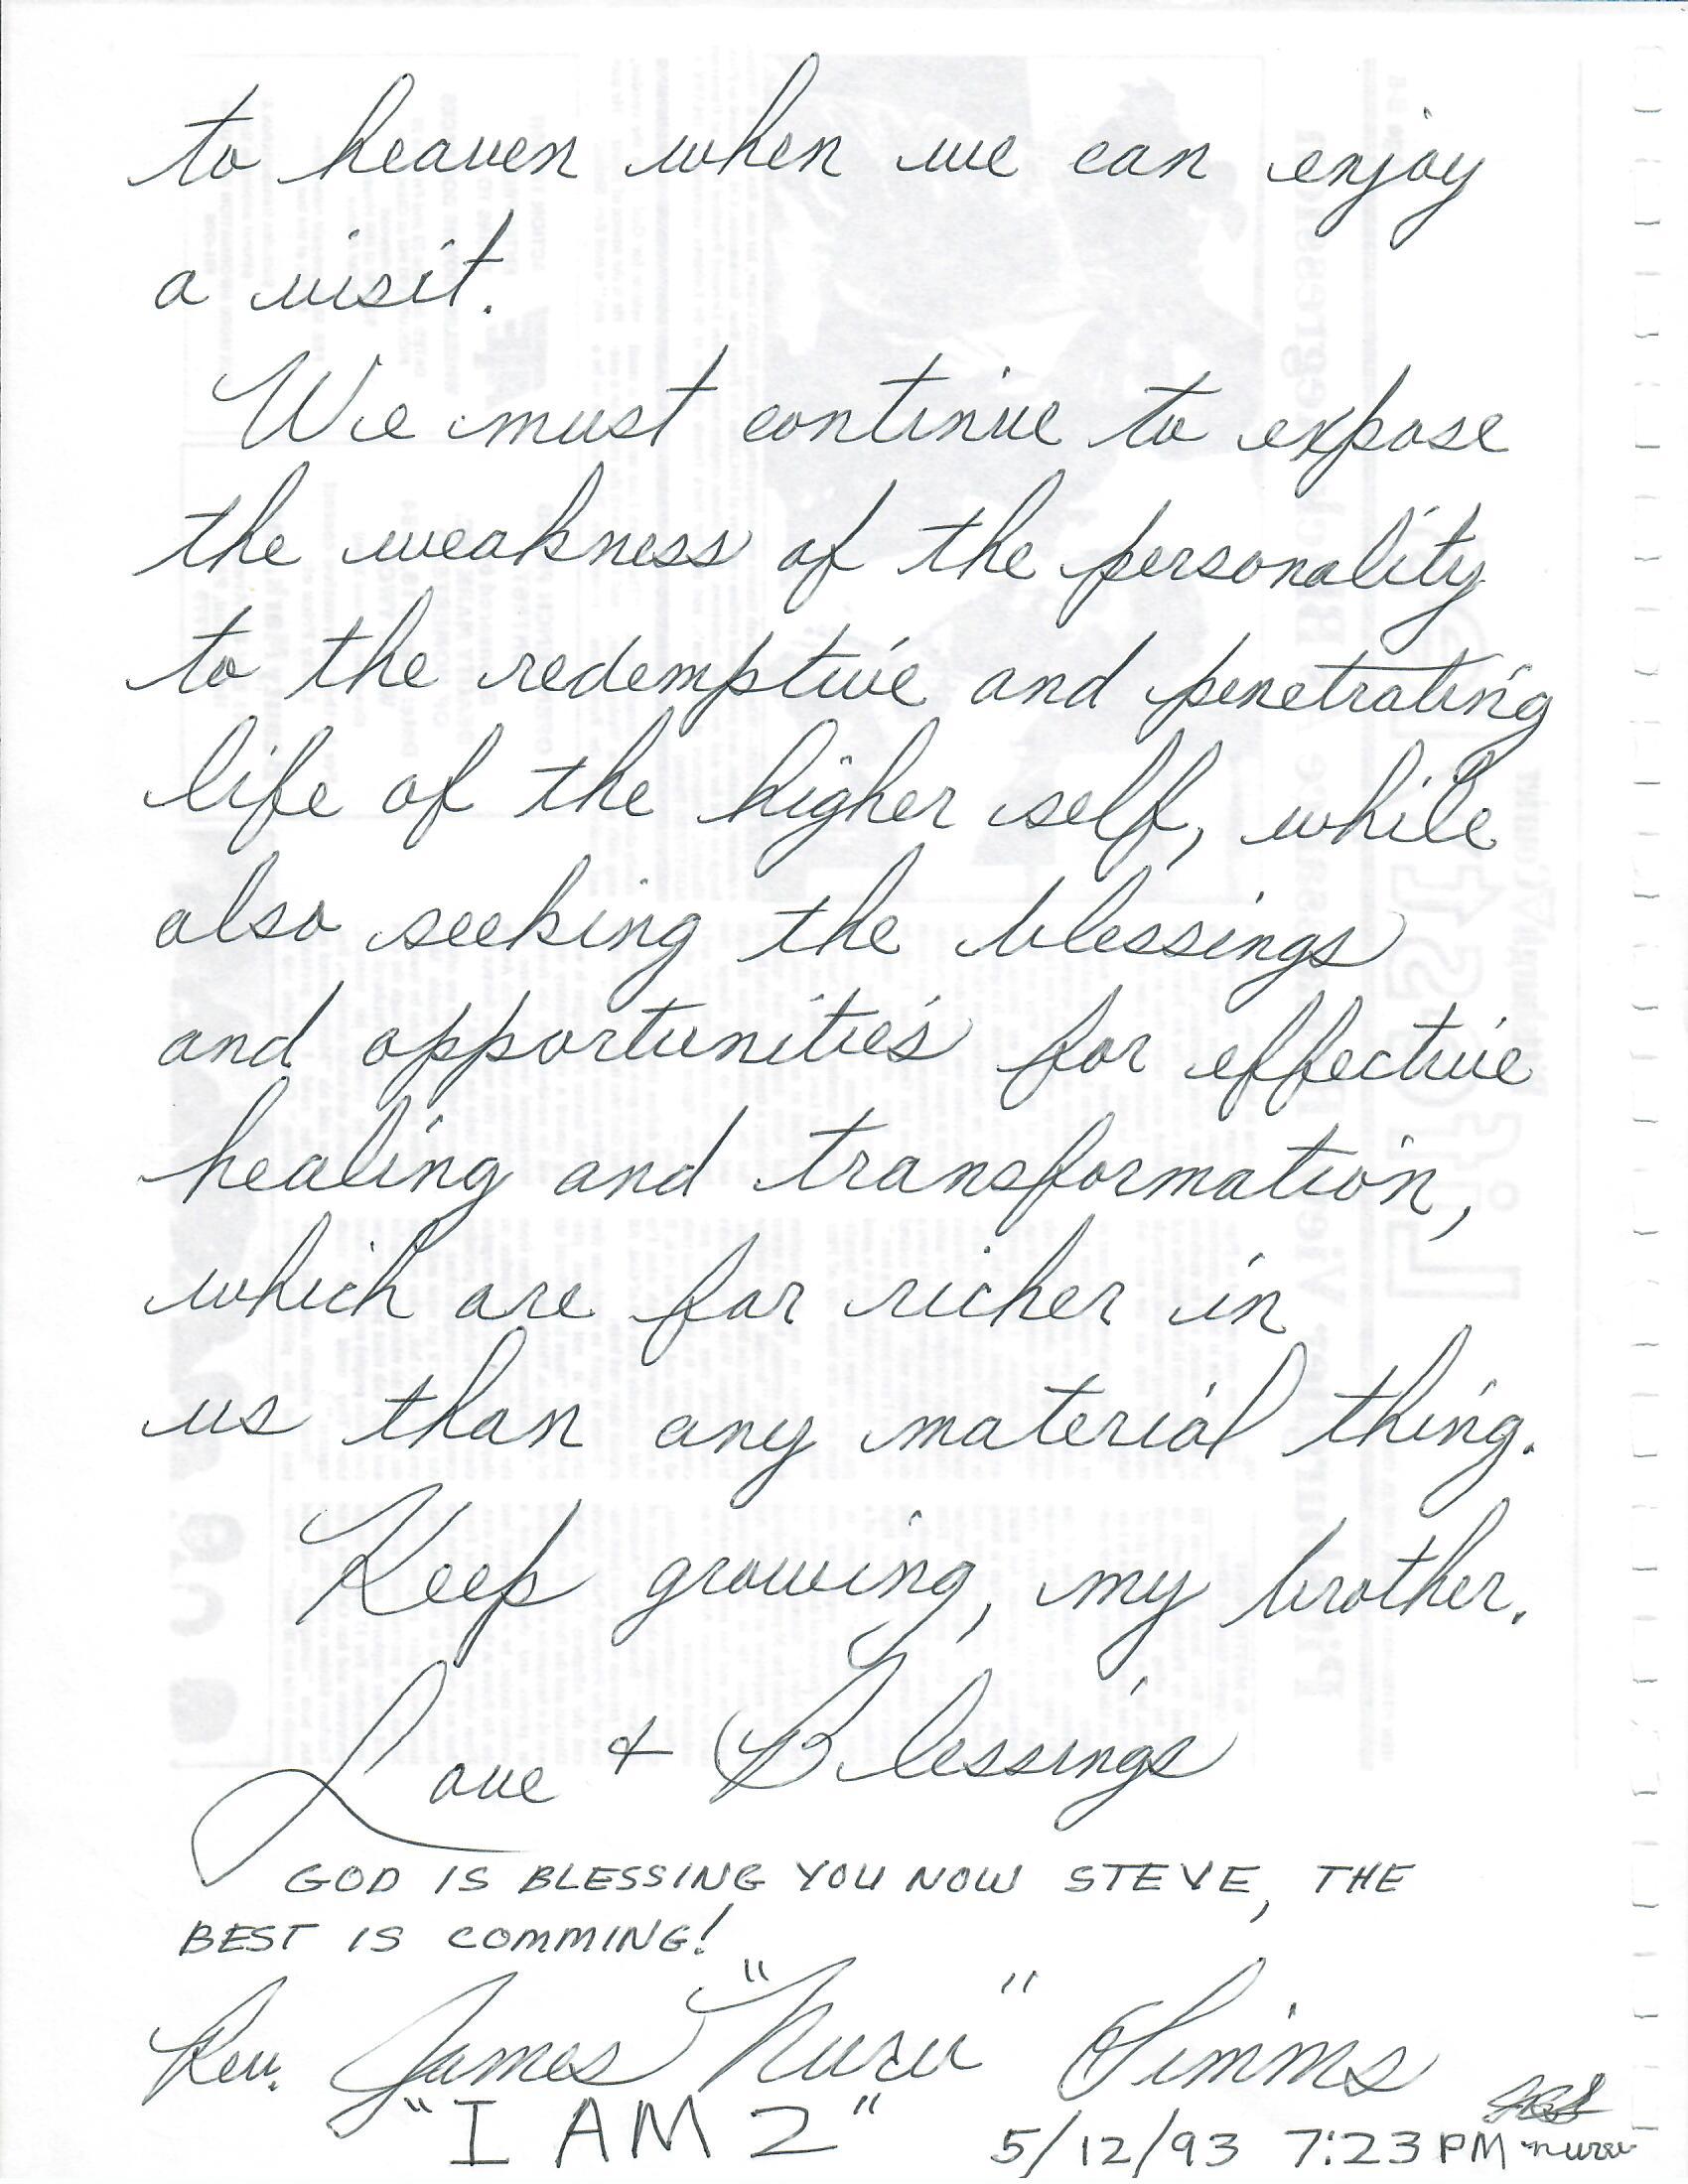 to heaven when we can enjoy
a visit.
We must continue to expose
the weakness of the personality
to the redemptive and penetrating
life of the higher self, while
also seeking the blessings
and opportunities for effective
healing and transformation,
which are far richer in
us than any material thing.
Keep growing, my brother.
Love + Blessings
GOD IS BLESSING YOU NOW STEVE, THE
BEST IS COMMING!
Rev. James "Nuru" Simms
"I AM 2"
5/12/93 7:23 PM nuru